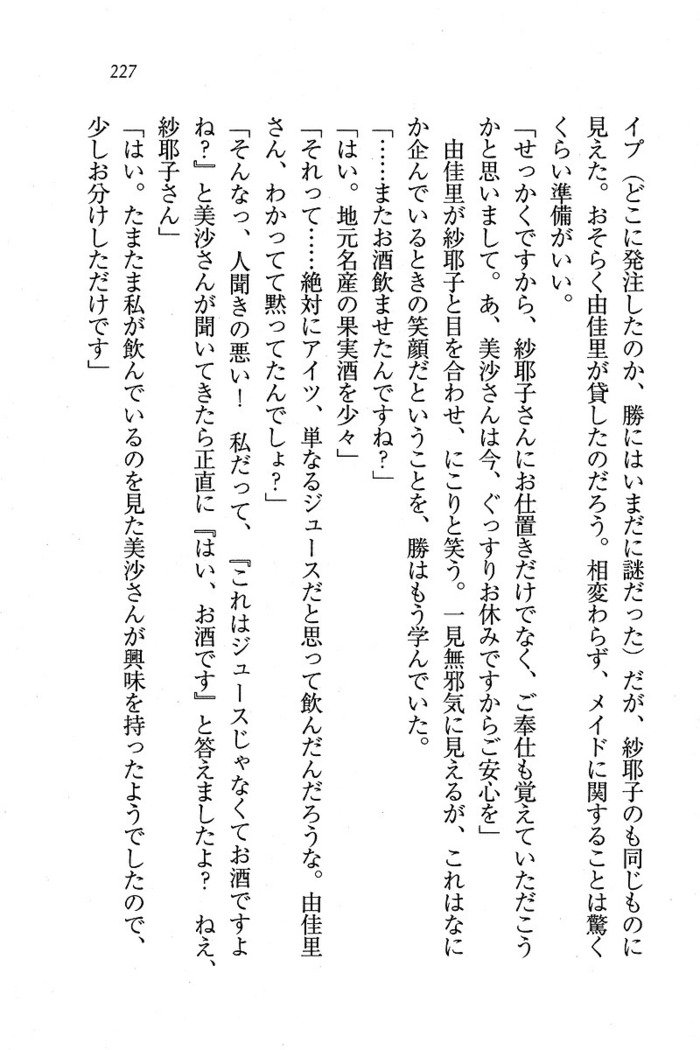 227
イプ（どこに発注したのか、勝にはいまだに謎だった）だが、紗耶子のも同じものに
見えた。おそらく由佳里が貸したのだろう。相変わらず、メイドに関することは驚く
くらい準備がいい。
「せっかくですから、紗耶子さんにお仕置きだけでなく、ご奉仕も覚えていただこう
かと思いまして。あ、美沙さんは今、ぐっすりお休みですからご安心を」
由佳里が紗耶子と目を合わせ、にこりと笑う。一見無邪気に見えるが、これはなに
か企んでいるときの笑顔だということを、勝はもう学んでいた。
「……またお酒飲ませたんですね？」
「はい。地元名産の果実酒を少々」
「それって……絶対にアイツ、単なるジュースだと思って飲んだんだろうな。由佳里
さん、わかってて黙ってたんでしょ？」
「そんなっ、人聞きの悪い！　私だって、『これはジュースじゃなくてお酒ですよ
ね？』と美沙さんが聞いてきたら正直に『はい、お酒です』と答えましたよ？　ねえ、
紗耶子さん」
「はい。たまたま私が飲んでいるのを見た美沙さんが興味を持ったようでしたので、
少しお分けしただけです」